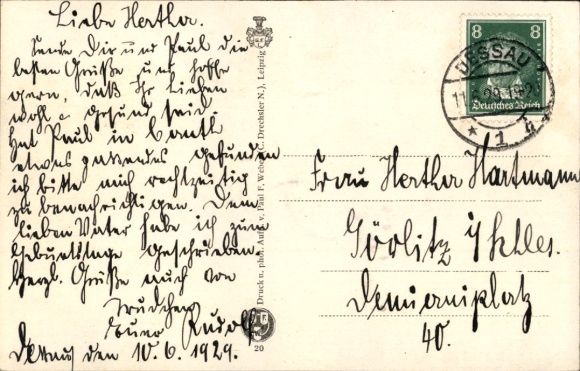 Liebe Herther.
Sende Dir und Paul die
besten Grüße und hoffe
gern, daß Ihr Lieben
wohl u. gesund seid.
Hat Paul in
etwas passendes gefunden
ich bitte mich rechtzeitig
zu benachrichtigen. Dem
lieben Vater habe ich zum
Geburtstage geschrieben.
Herzl. Grüße auch von
Trudchen
Euer Rudolf
Dessau den 10.6.1929.
Druck u. phot. Aufn. v. Paul F. Weber (C. Drechsler N.), Leipzig
20
8 8
Deutsches Reich
DESSAU
* 1
Frau Herther Hartmann
Görlitz i/Schles.
Demianiplatz
40.